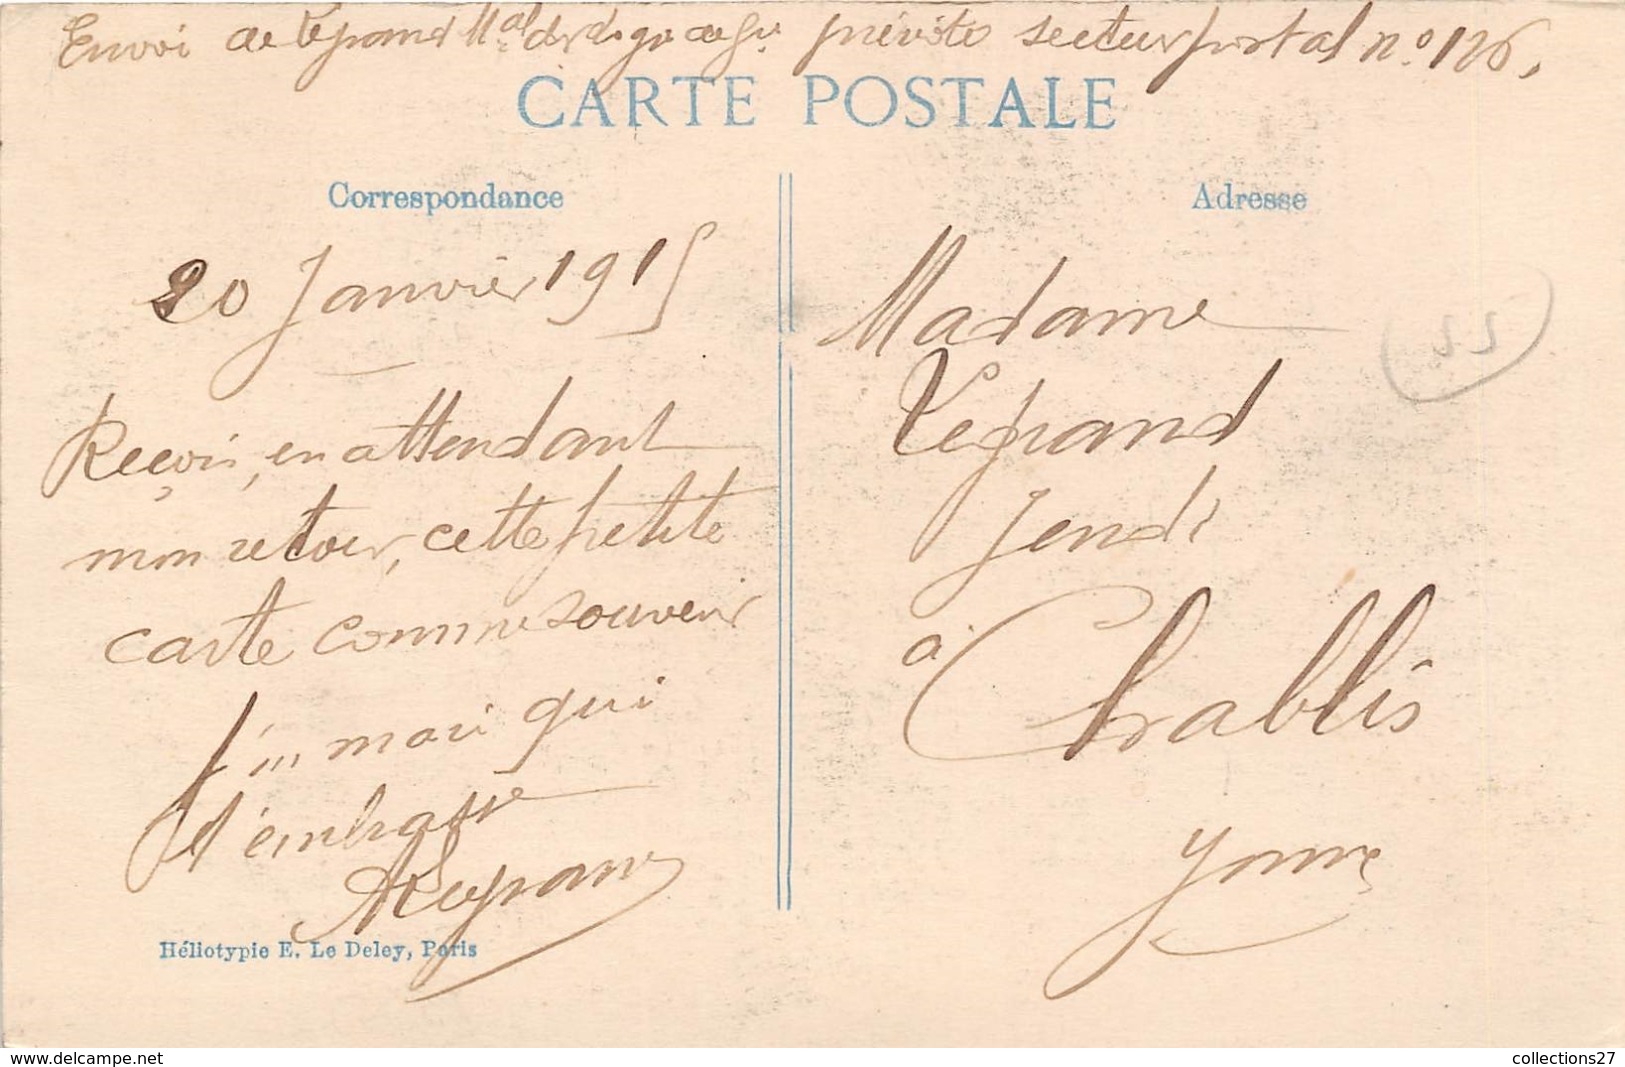 Envoi de Legrand Mal des logis de gie prévôté secteur postal no. 126.
CARTE POSTALE
Correspondance
Adresse
20 Janvier 1915
Reçois, en attendant
mon retour, cette petite
carte comme souvenir
mari qui
t'embrasse
Legrand
Héliotypie E. Le Deley, Paris
Madame
Legrand
à Chablis
Yonne
22
www.delcampe.net
collections27